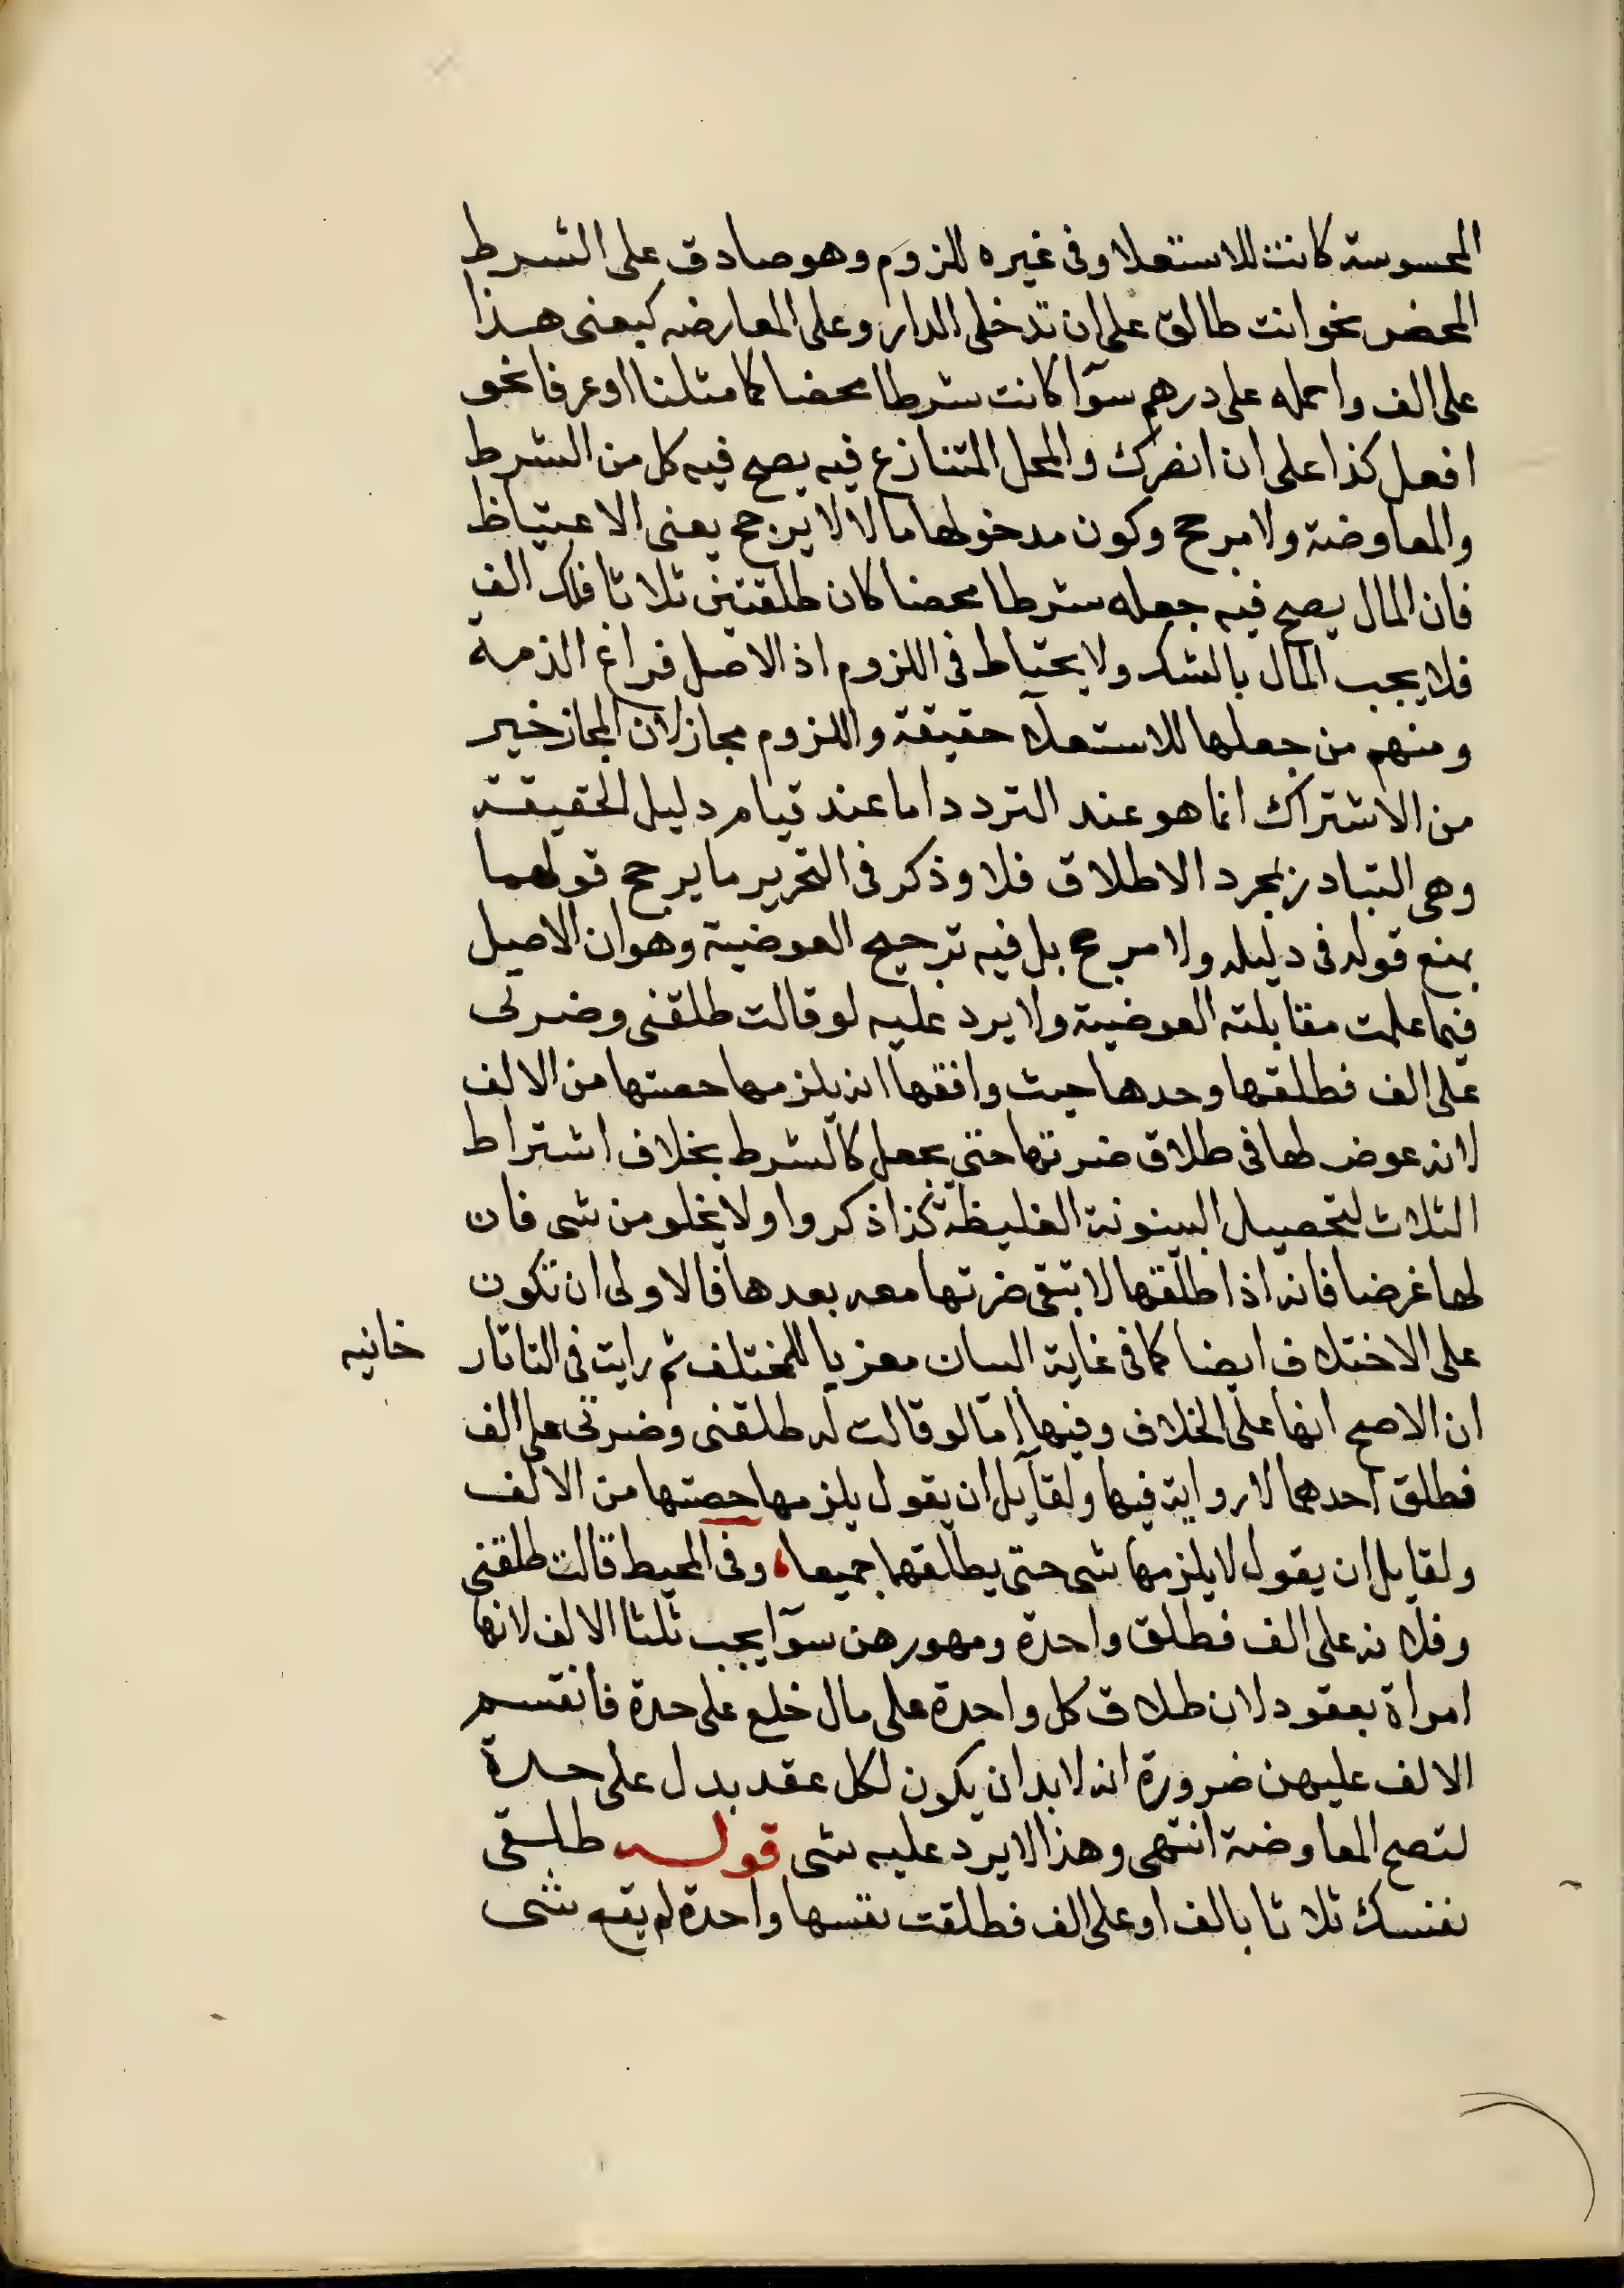 المحسوسة كانت للاستعلا وفى غيره للزوم وهو صادق على الشرط
المحض نحو انت طالق على ان تدخلى الدار وعلى المعارضه كبعنى هذا
على الف واحمله على درهم سوآ كانت شرطا محضا كما مثلنا اوعرفا نحو
افعل كذا على ان انصرك والمحل المتنازع فيه يصح فيه كل من الشرط
والمعاوضة ولا مرجح وكون مدخولها مالا لا يرجح يعنى الاعتياظ
فان المال يصح فيه جعله شرطا محضا كان طلقتنى ثلاثا فلك الف
فلا يجب المال بالشك ولا يحتاط فى اللزوم اذ الاصل فراغ الذمة
ومنهم من جعلها للاستعلآ حقيقة واللزوم مجاز لان المجاز خير
من الاشتراك انما هو عند التردد اما عند قيام دليل الحقيقة
وهى التبادر بمجرد الاطلاق فلا وذكر فى التحرير ما يرجح قولهما
بمنع قوله فى دليله ولا مرجح بل فيه ترجيح العوضية وهو ان الاصل
فيما علمت مقابلته العوضية ولا يرد عليه لو قالت طلقنى وضرتى
على الف فطلقها وحدها حيث وافقها انه يلزمها حصتها من الالف
لانه عوض لها فى طلاق ضرتها حتى يجعل كالشرط بخلاف اشتراط
الثلاث لتحصيل البينونة الغليظة كذا ذكروا ولا يخلو من شى فان
لها غرضا فانه اذا طلقها لا تبقى ضرتها معه بعدها فالاولى ان تكون
على الاختلاف ايضا كما فى غاية البيان معزيا للمختلف ثم رايت فى التاتار خانيه
ان الاصح انها على الخلاف وفيها امّا لو قالت له طلقنى وضرتى على الف
فطلق احدهما لا رواية فيها ولقآيل ان يقول يلزمها حصتها من الالف
ولقايل ان يقول لا يلزمها شى حتى يطلقهما جميعا، وفى المحيط قالت طلقنى
وفلانه على الف فطلق واحدة ومهورهن سوآ يجب ثلثا الالف لانها
امراة بعقود لان طلاق كل واحدة على مال خلع على حدة فانقسم
الالف عليهن ضرورة انه لابد ان يكون لكل عقد بدل على حدة
لتصح المعاوضة انتهى وهذا لا يرد عليه شى قوله طلقى
نفسك ثلاثا بالف او على الف فطلقت نفسها واحدة لم يقع شى